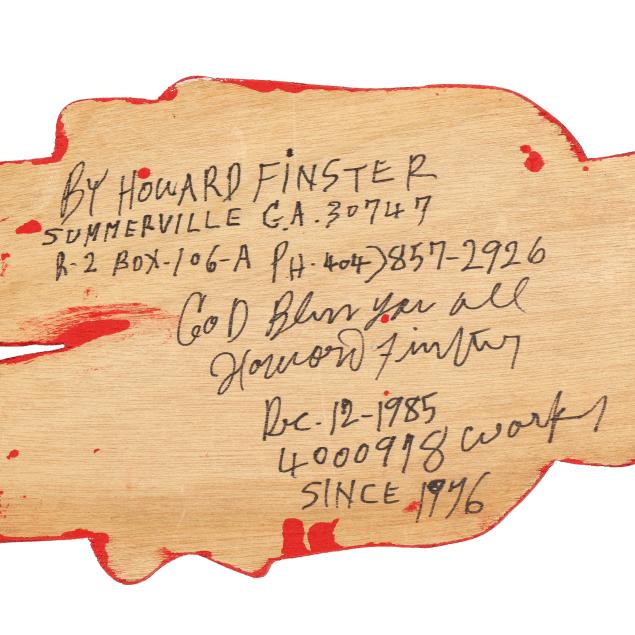 BY HOWARD FINSTER
SUMMERVILLE GA. 30747
R-2 BOX-106-A PH-404)857-2926
GOD Bless you all
Howard Finster
Dec. 12-1985
4000978 works
SINCE 1976